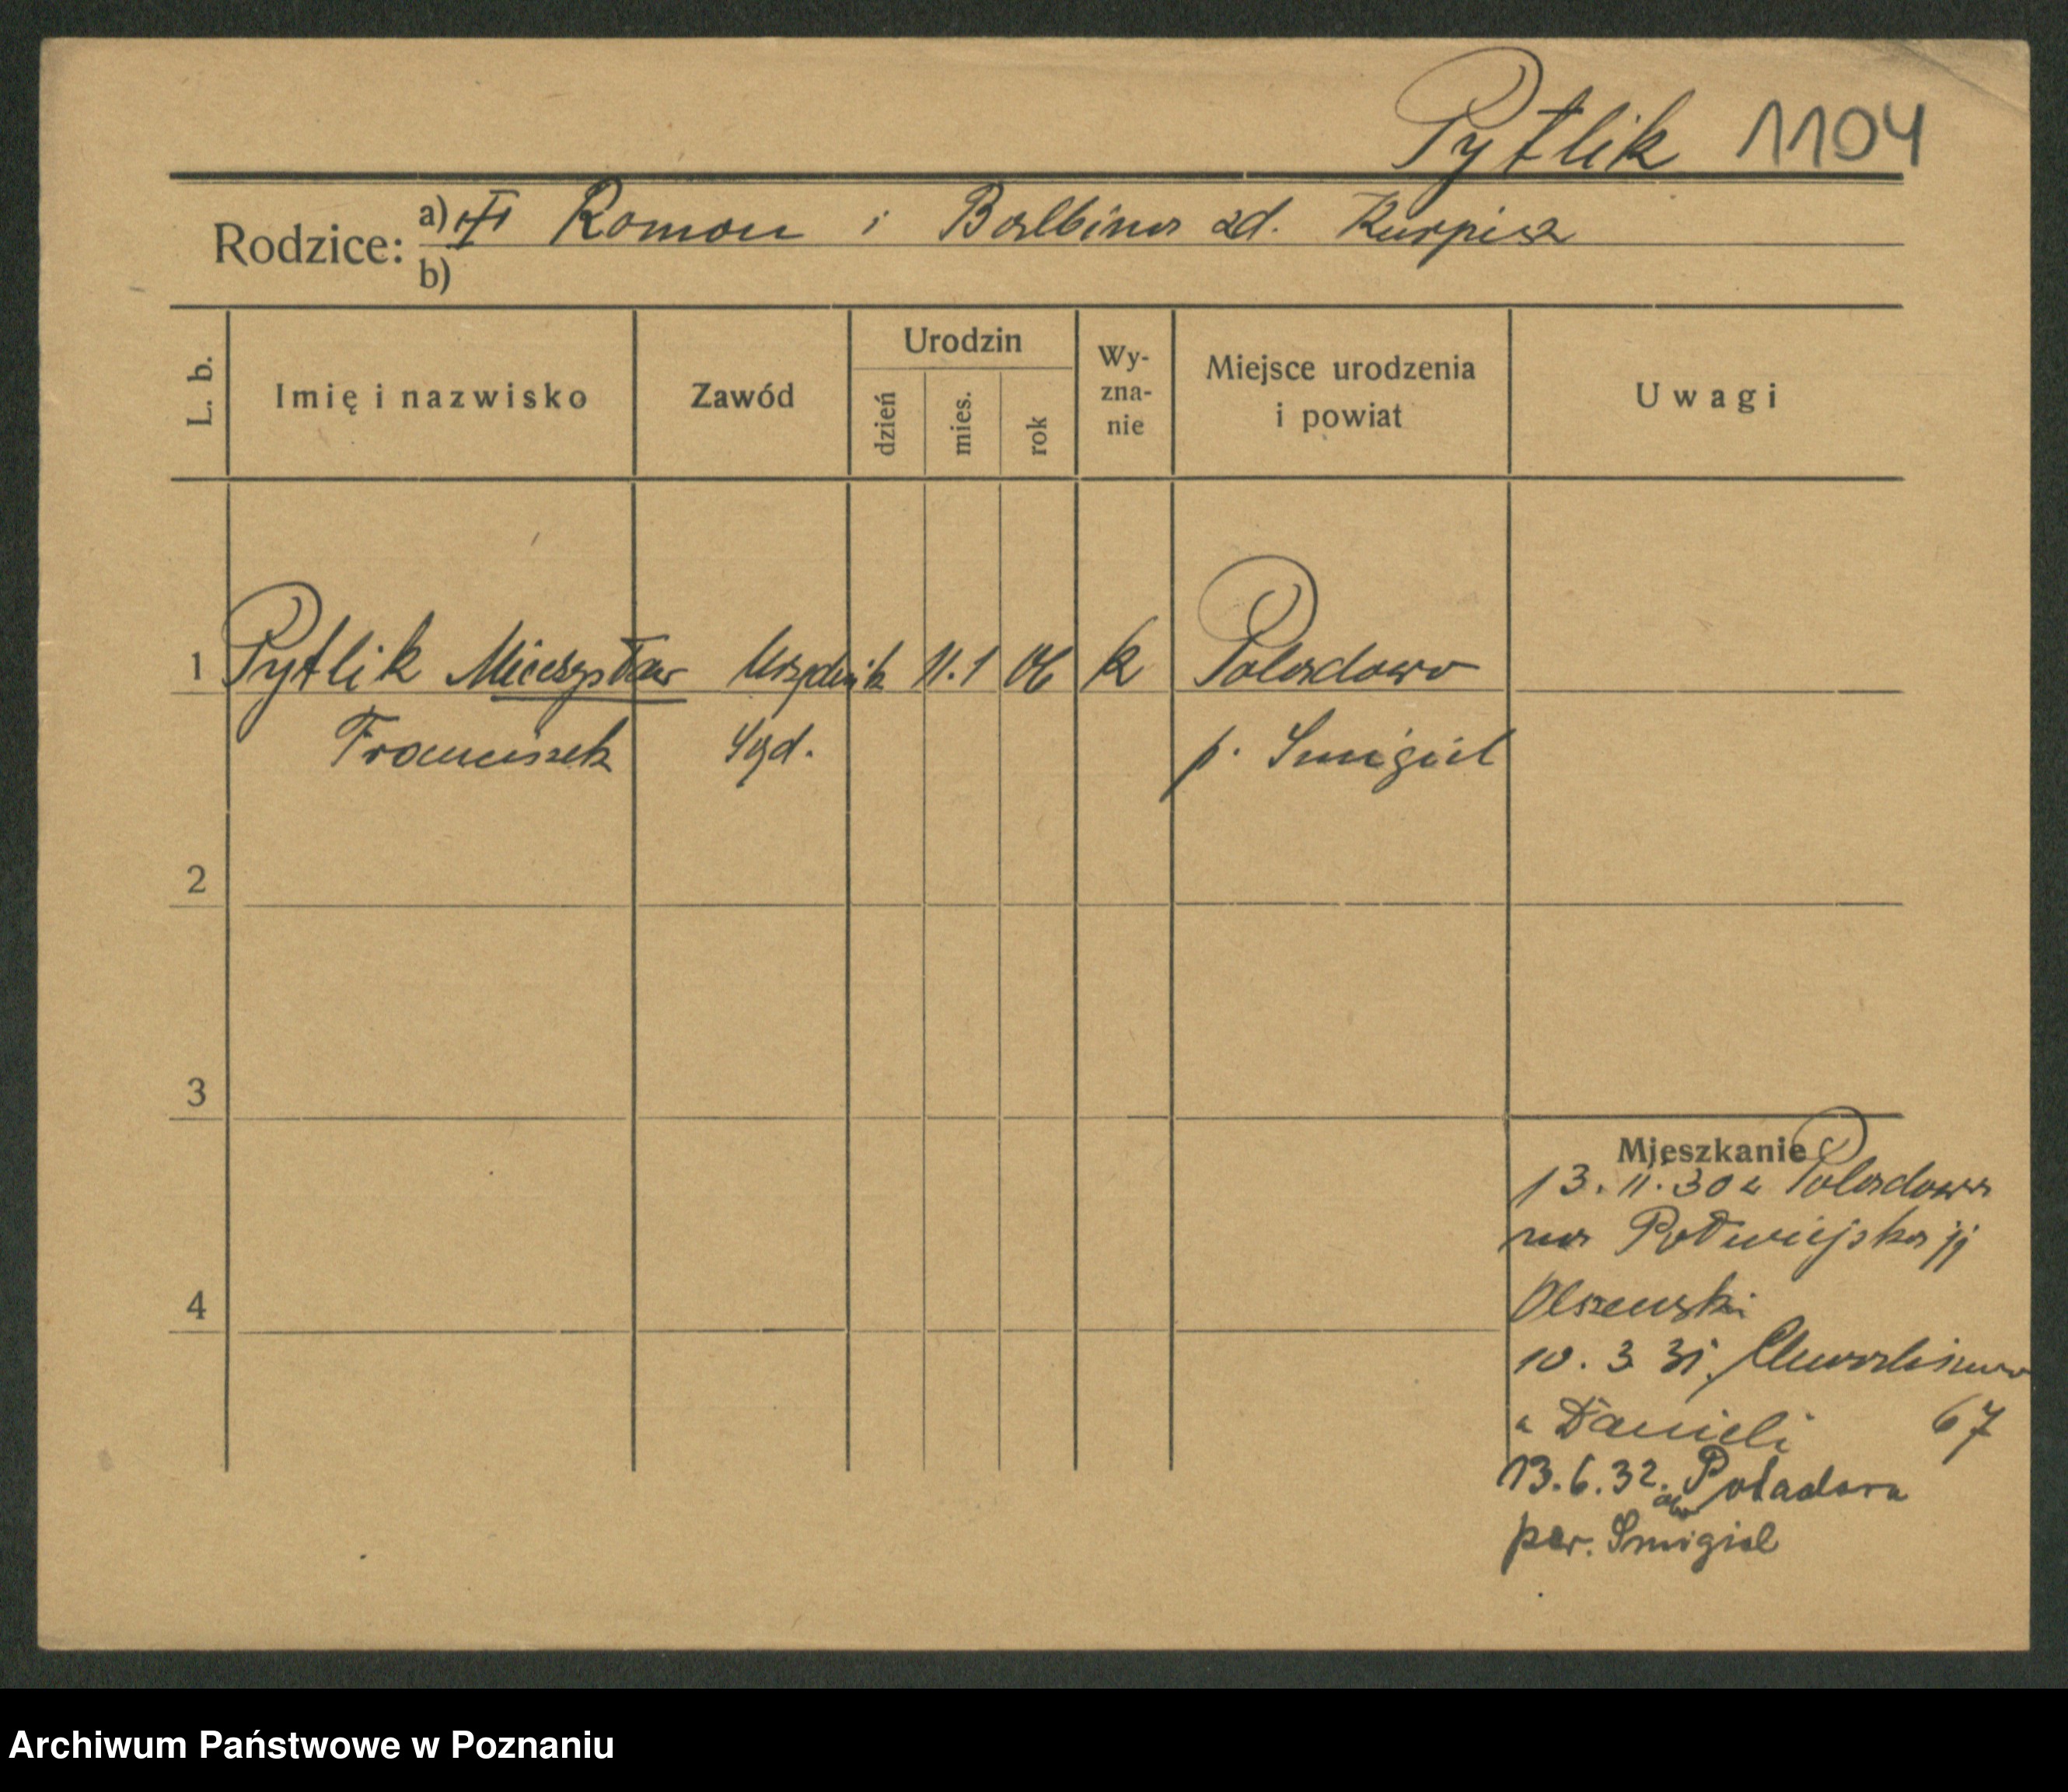 Pytlik 1104
Rodzice: a) Roman i Balbina zd. Kurpisz
b)
L. b. Imię i nazwisko Zawód Urodzin dzień mies. rok Wy-zna-nie Miejsce urodzenia i powiat Uwagi
1 Pytlik Mieczysław Urzędnik 11.1 06 k Poladowo
Franciszek Sąd. p. Smigiel
2
3
Mieszkanie
13. 11. 30 z Poladowa
na Półwiejska
4
Olszewski
10. 3 31.
u Danieli 67
13.6.32. do Poladowa
pow. Smigiel
Archiwum Państwowe w Poznaniu